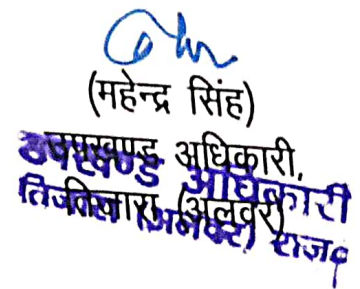 (महेन्द्र सिंह)
उपखण्ड अधिकारी,
तिजारा (अलवर)
उपखण्ड अधिकारी
तिजारा (अलवर) राज०